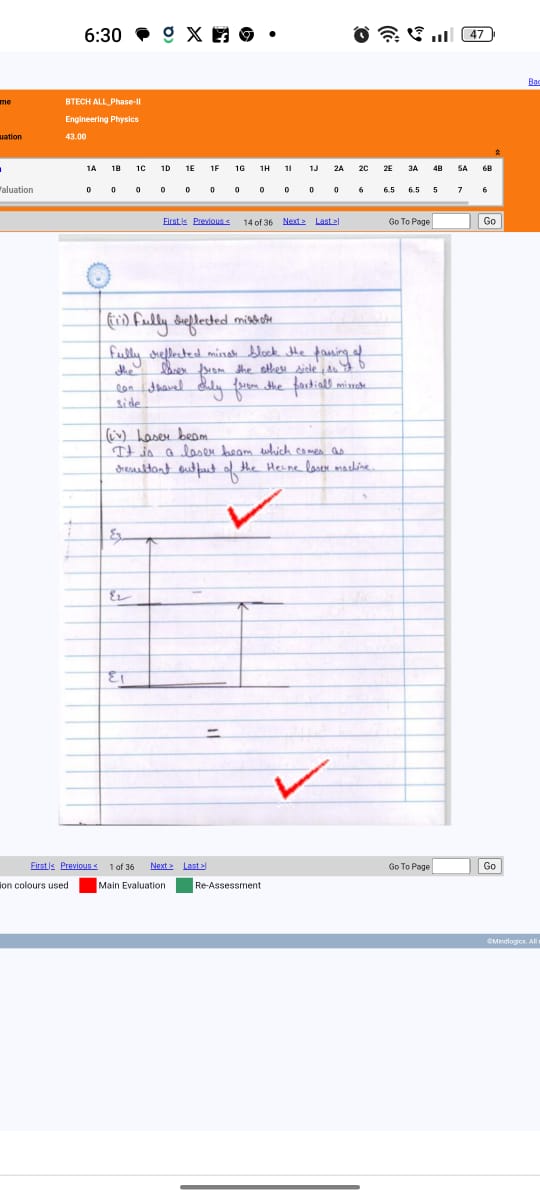 6:30
47
Bac
me
BTECH ALL_Phase-II
Engineering Physics
uation
43.00
1A 1B 1C 1D 1E 1F 1G 1H 1I 1J 2A 2C 2E 3A 4B 5A 6B
aluation 0 0 0 0 0 0 0 0 0 0 0 6 6.5 6.5 5 7 6
First |< Previous < 14 of 36 Next > Last >| Go To Page Go
(iii) Fully reflected mirror
Fully reflected mirror block the passing of
the laser from the other side, so it
can travel only from the partiall mirror
side
(iv) Laser beam
It is a laser beam which comes as
resultant output of the He:ne laser machine.
E3
E2
E1
First |< Previous < 1 of 36 Next > Last >| Go To Page Go
ion colours used Main Evaluation Re-Assessment
©Mindlogicx. All